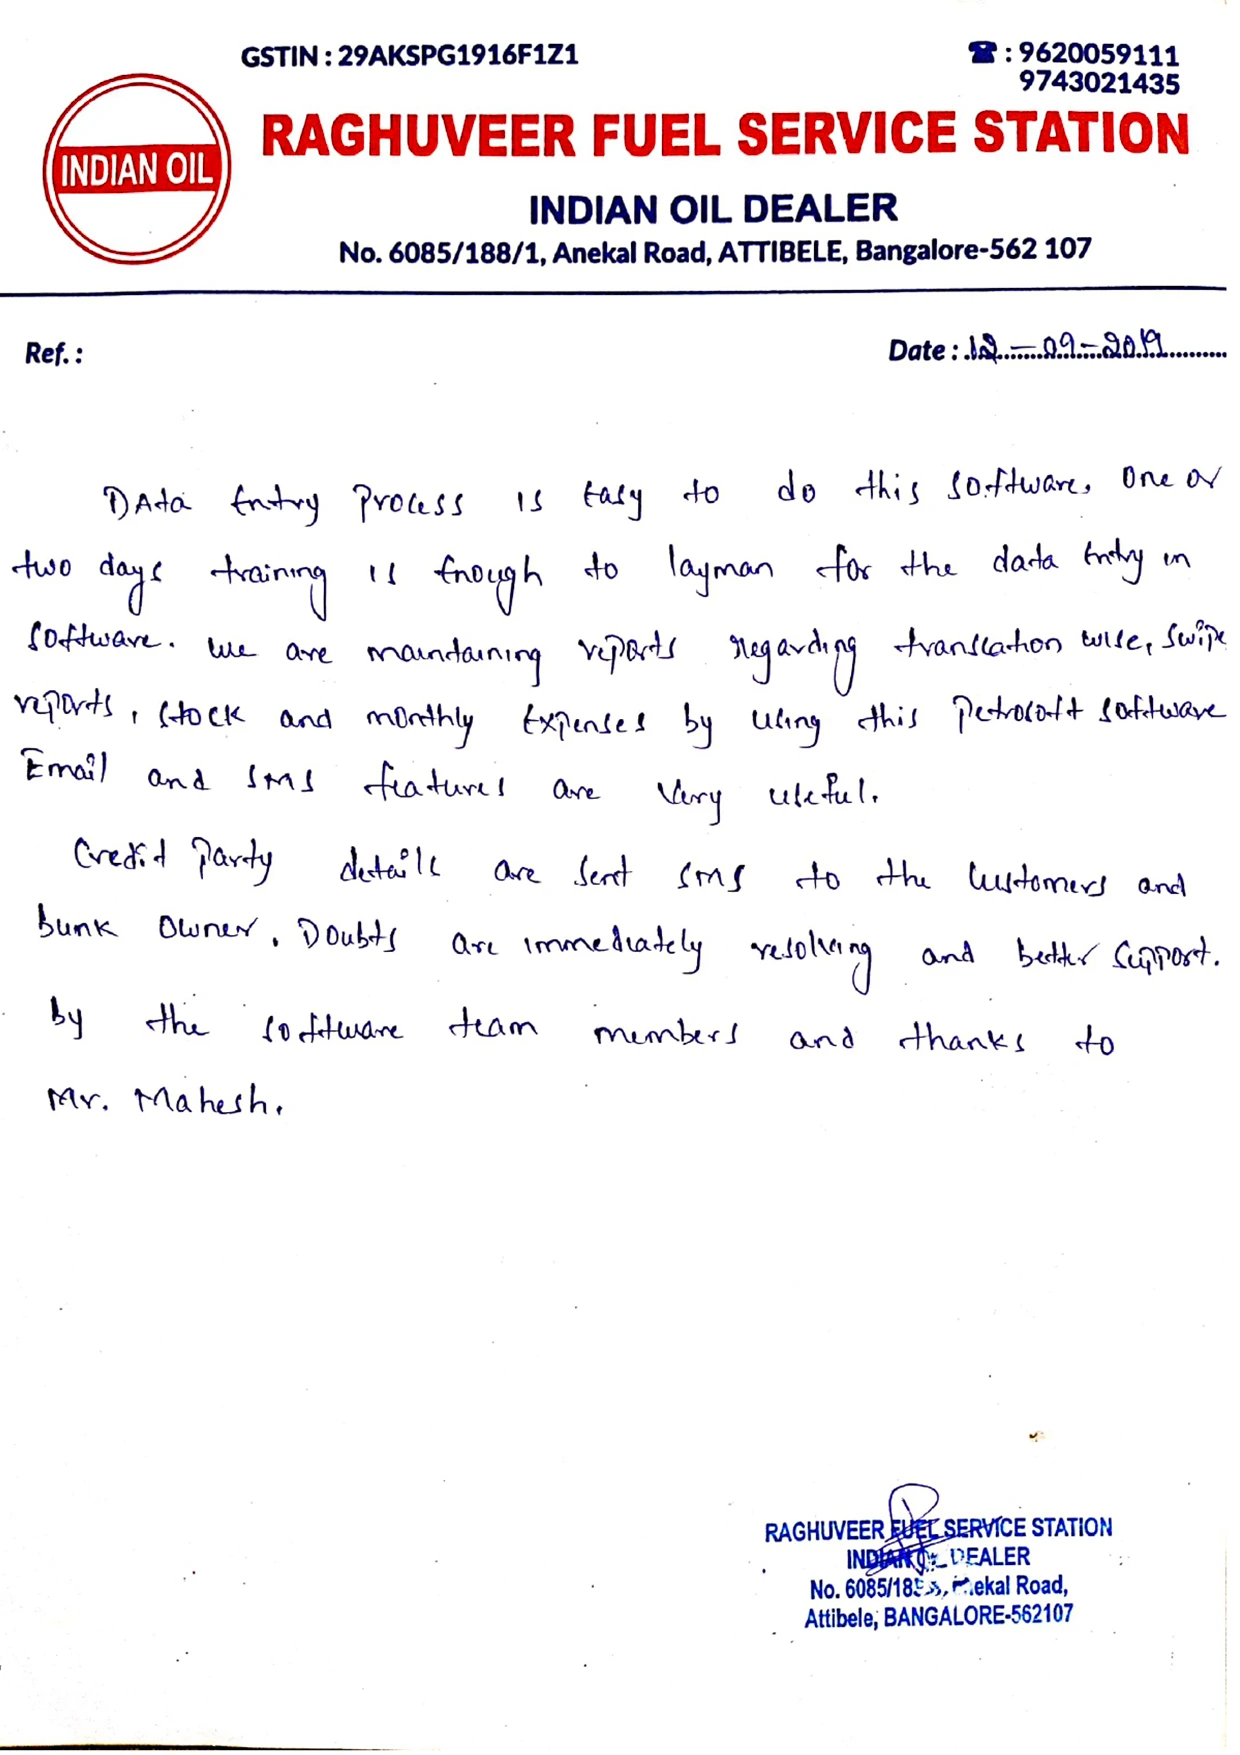 GSTIN : 29AKSPG1916F1Z1
☎ : 9620059111
9743021435
INDIAN OIL
RAGHUVEER FUEL SERVICE STATION
INDIAN OIL DEALER
No. 6085/188/1, Anekal Road, ATTIBELE, Bangalore-562 107
Ref. :
Date : 12-09-2019
DAta Entry Process is Easy to do this software. One or
two days training is Enough to layman for the data Entry in
software. we are maintaining reports regarding transcation wise, swipe
reports, stock and monthly Expenses by using this Petrosoft software
Email and SMS features are Very useful.
Credit Party details are sent SMS to the Customers and
bunk Owner. Doubts are immediately resolving and better support.
by the software team members and thanks to
Mr. Mahesh.
RAGHUVEER FUEL SERVICE STATION
INDIAN DEALER
No. Road,
Attibele, BANGALORE-562107